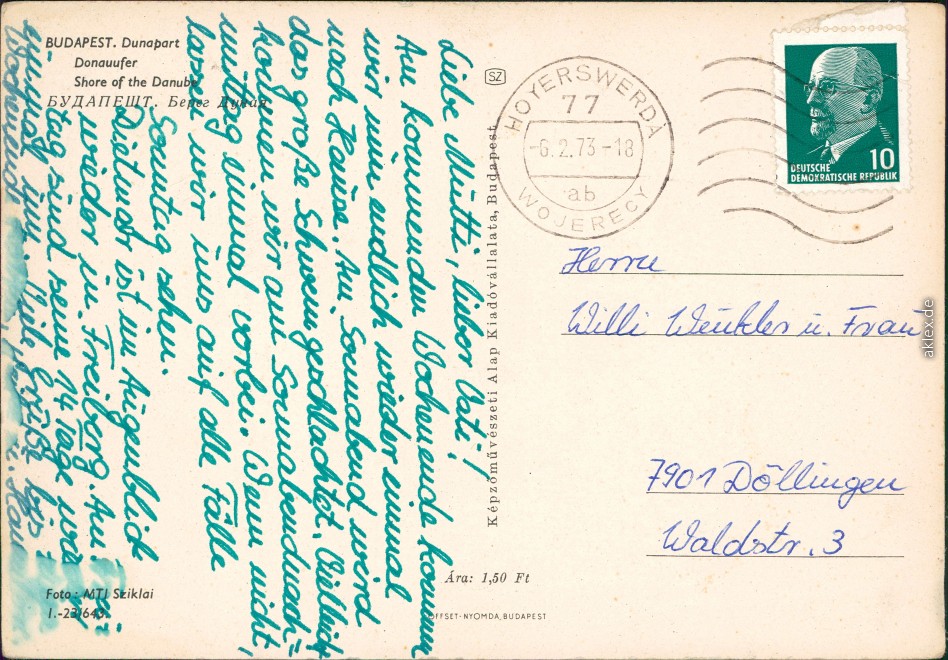 BUDAPEST. Dunapart
Donauufer
Shore of the Danube
БУДАПЕШТ. Берег Дуная
Liebe Mutti, lieber Vati!
Am kommenden Wochenende kommen
wir nun endlich wieder einmal
nach Hause. Am Sonnabend wird
das große Schwein geschlachtet. Vielleicht
kommen wir am Sonnabendnach=
mittag einmal vorbei. Wenn nicht,
lassen wir uns auf alle Fälle
Sonntag sehen.
Dietmar ist im Augenblick
wieder in Freiberg. Am
tag sind seine 14 Tage
einmal um. Viele Grüße
Wochenende
Foto: MTI Sziklai
I.-23/643
Képzőművészeti Alap Kiadóvállalata, Budapest
SZ
Ára: 1,50 Ft
OFFSET-NYOMDA, BUDAPEST
HOYERSWERDA
77
-6.2.73-18
ab
WOJERECY
DEUTSCHE
DEMOKRATISCHE REPUBLIK
10
Herrn
Willi Winkler u. Frau
7901 Döllingen
Waldstr. 3
aklex.de